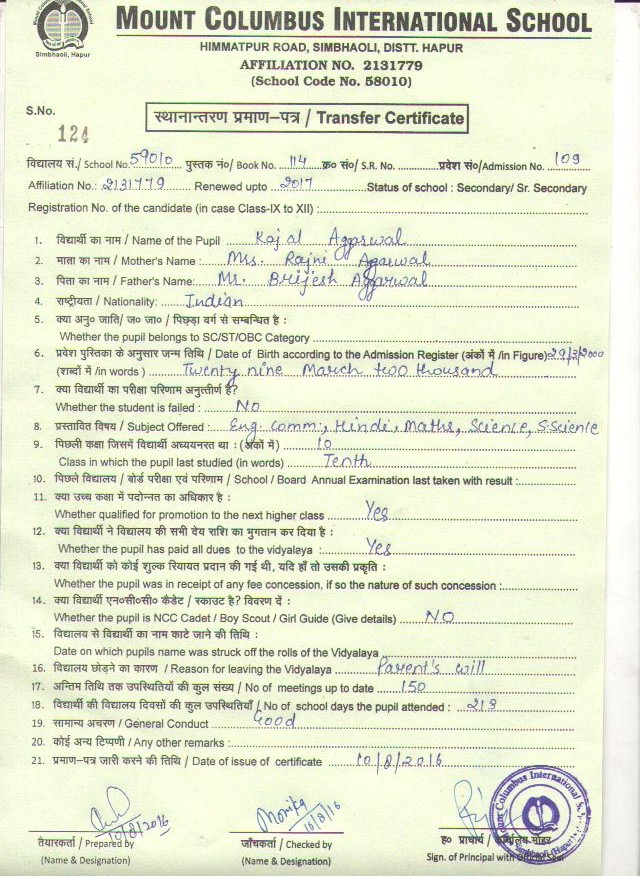 Simbhaoli, Hapur
MOUNT COLUMBUS INTERNATIONAL SCHOOL
HIMMATPUR ROAD, SIMBHAOLI, DISTT. HAPUR
AFFILIATION NO. 2131779
(School Code No. 58010)
S.No.
124
स्थानान्तरण प्रमाण-पत्र / Transfer Certificate
विद्यालय सं./ School No. 59010 पुस्तक नं०/ Book No. 114 क्र० सं०/ S.R. No. प्रवेश सं०/Admission No. 109
Affiliation No.: 2131779 Renewed upto 2017 Status of school : Secondary/ Sr. Secondary
Registration No. of the candidate (in case Class-IX to XII) :
1. विद्यार्थी का नाम / Name of the Pupil Kajal Aggarwal
2. माता का नाम / Mother's Name : Mrs. Rajni Agarwal
3. पिता का नाम / Father's Name: Mr. Brijesh Aggarwal
4. राष्ट्रीयता / Nationality: Indian
5. क्या अनु० जाति/ ज० जा० / पिछड़ा वर्ग से सम्बन्धित है :
Whether the pupil belongs to SC/ST/OBC Category
6. प्रवेश पुस्तिका के अनुसार जन्म तिथि / Date of Birth according to the Admission Register (अंकों में /in Figure) 29/3/2000
(शब्दों में /in words ) Twenty nine March two thousand
7. क्या विद्यार्थी का परीक्षा परिणाम अनुत्तीर्ण है?
Whether the student is failed : NO
8. प्रस्तावित विषय / Subject Offered : Eng. comm., Hindi, Maths, Science, S.Science
9. पिछली कक्षा जिसमें विद्यार्थी अध्ययनरत था : (अंकों में) 10
Class in which the pupil last studied (in words) Tenth
10. पिछले विद्यालय / बोर्ड परीक्षा एवं परिणाम / School / Board Annual Examination last taken with result :
11. क्या उच्च कक्षा में पदोन्नत का अधिकार है :
Whether qualified for promotion to the next higher class Yes
12. क्या विद्यार्थी ने विद्यालय की सभी देय राशि का भुगतान कर दिया है :
Whether the pupil has paid all dues to the vidyalaya : Yes
13. क्या विद्यार्थी को कोई शुल्क रियायत प्रदान की गई थी, यदि हाँ तो उसकी प्रकृति :
Whether the pupil was in receipt of any fee concession, if so the nature of such concession :
14. क्या विद्यार्थी एन०सी०सी० कैडेट / स्काउट है? विवरण दें :
Whether the pupil is NCC Cadet / Boy Scout / Girl Guide (Give details) NO
15. विद्यालय से विद्यार्थी का नाम काटे जाने की तिथि :
Date on which pupils name was struck off the rolls of the Vidyalaya
16. विद्यालय छोड़ने का कारण / Reason for leaving the Vidyalaya Parent's will
17. अन्तिम तिथि तक उपस्थितियों की कुल संख्या / No of meetings up to date 150
18. विद्यार्थी की विद्यालय दिवसों की कुल उपस्थितियाँ / No of school days the pupil attended : 213
19. सामान्य अचरण / General Conduct Good
20. कोई अन्य टिप्पणी / Any other remarks :
21. प्रमाण-पत्र जारी करने की तिथि / Date of issue of certificate 10/8/2016
10/8/2016 Monika 10/8/16
तैयारकर्ता / Prepared by जाँचकर्ता / Checked by ह० प्राचार्य / कार्यालय मोहर
(Name & Designation) (Name & Designation) Sign. of Principal with Official Seal
Mount Columbus International S.
Simbhaoli (Hapur)